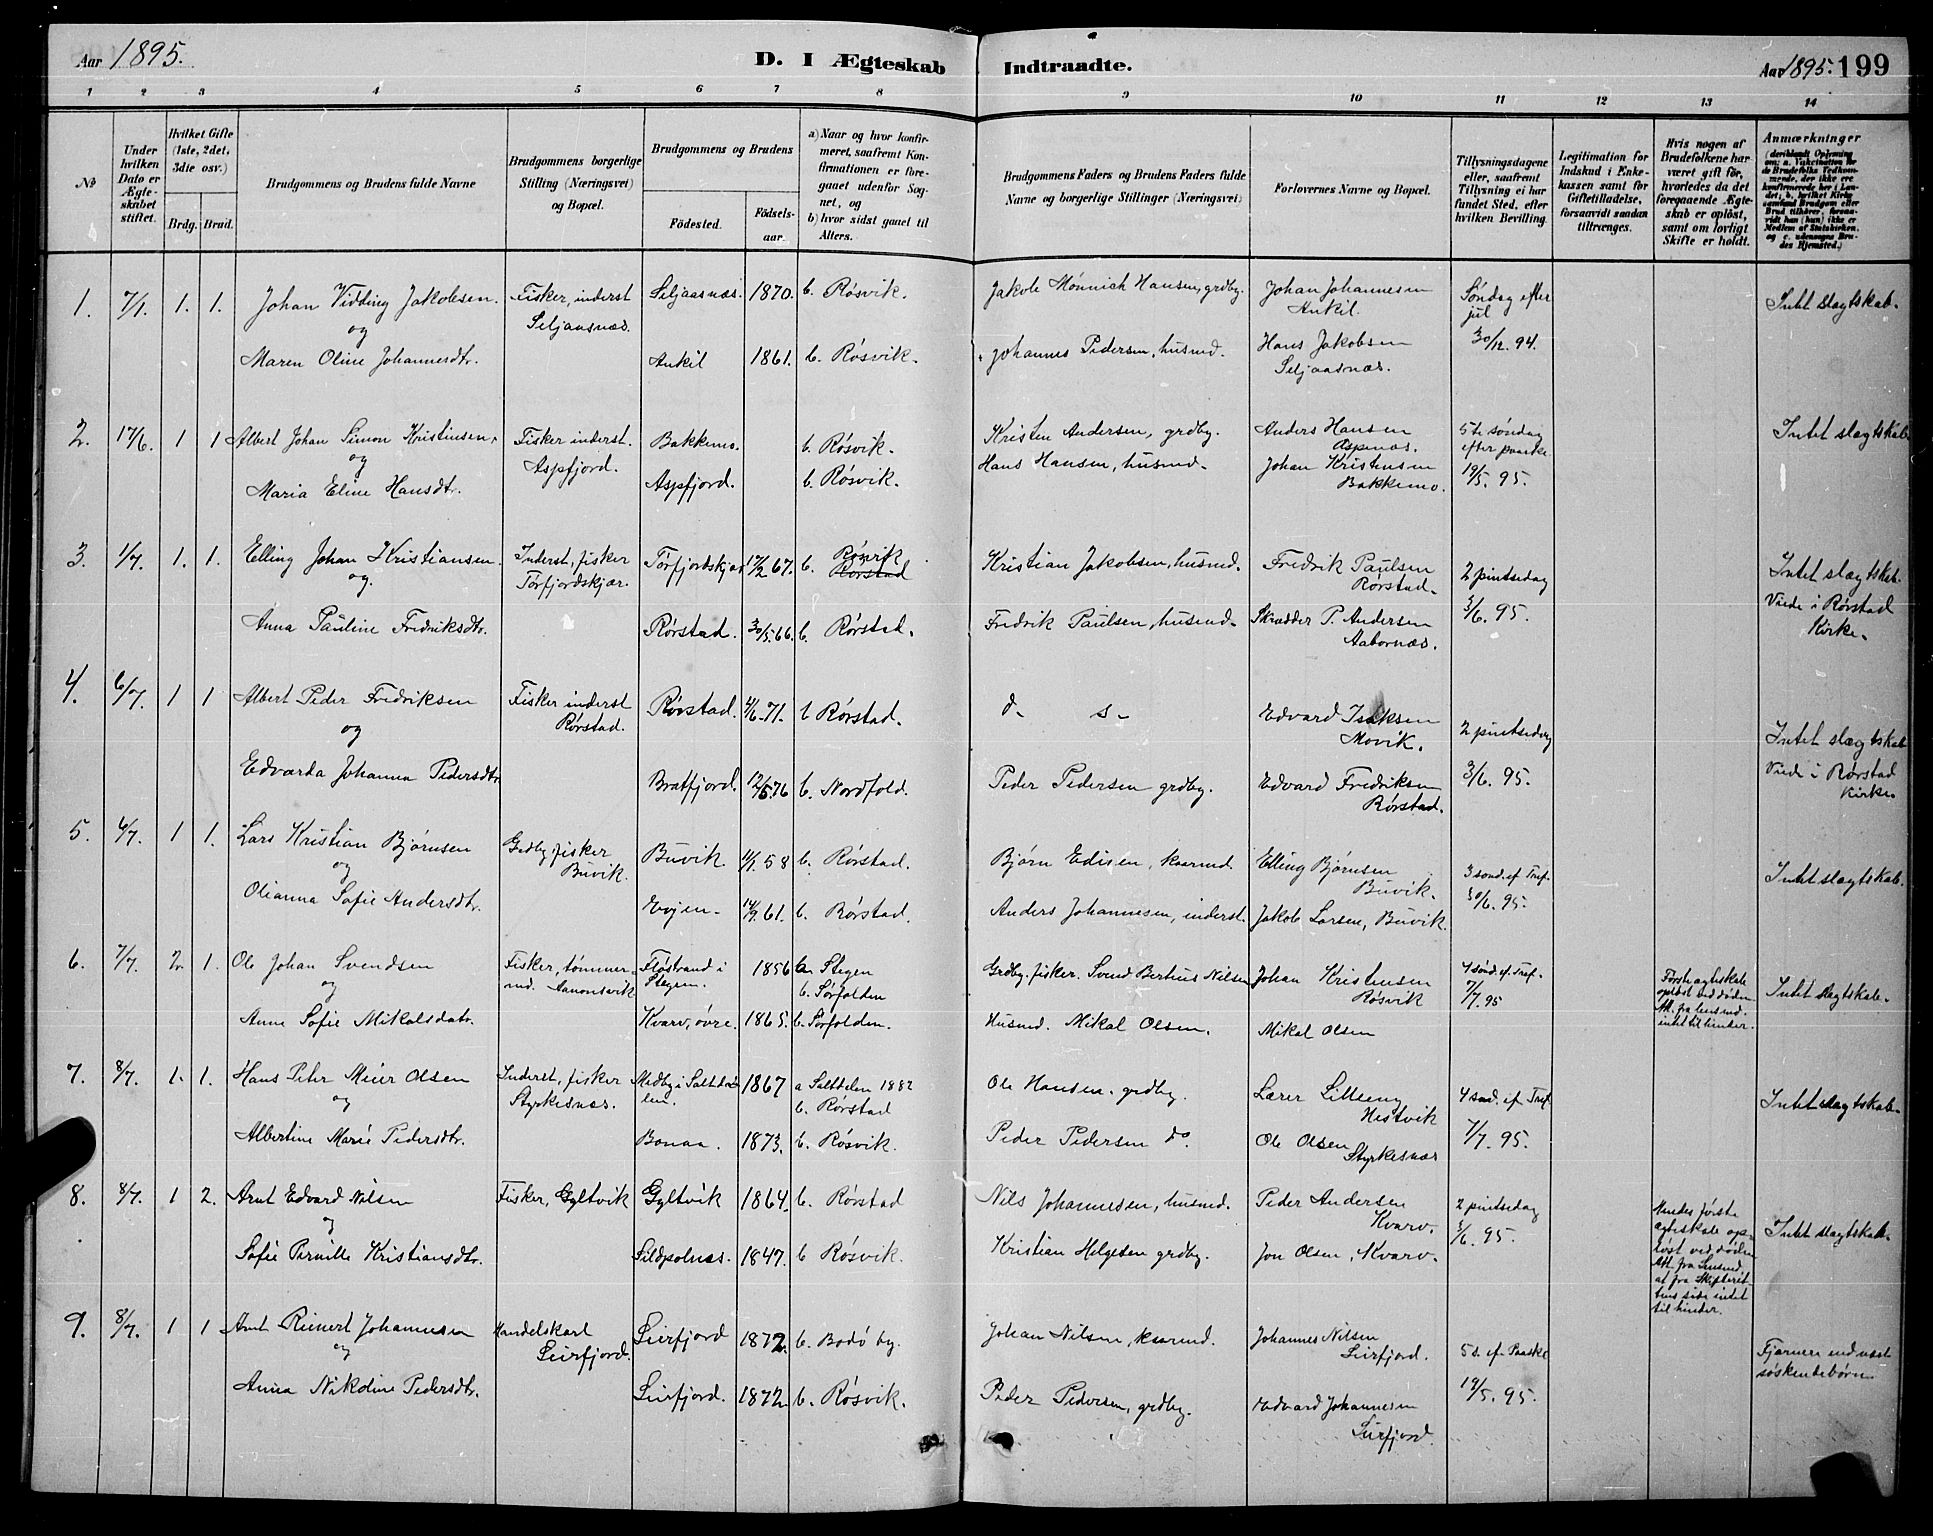 Aar 1895.
D. I Ægteskab Indtraadte.
Aar 1895. 199
1 2 3 4 5 6 7 8 9 10 11 12 13 14
No
Under hvilken Dato er Ægteskabet stiftet.
Hvilket Gifte (1ste, 2det, 3die osv.)
Brdg. Brud.
Brudgommens og Brudens fulde Navne
Brudgommens borgerlige Stilling (Næringsvei) og Bopæl.
Brudgommens og Brudens
Födested.
Födselsaar.
a) Naar og hvor konfirmeret, saafremt Konfirmationen er foregaaet udenfor Sognet, og
b) hvor sidst gaaet til Alters.
Brudgommens Faders og Brudens Faders fulde Navne og borgerlige Stillinger (Næringsvei)
Forlovernes Navne og Bopæl.
Tillysningsdagene eller, saafremt Tillysning ei har fundet Sted, efter hvilken Bevilling.
Legitimation for Indskud i Enkekassen samt for Giftetilladelse, forsaavidt saadan tiltrænges.
Hvis nogen af Brudefolkene har været gift før, hvorledes da det foregaaende Ægteskab er oplöst, samt om lovligt Skifte er holdt.
Anmærkninger (deriblandt Oplysning om: a. Vaksination for de Brudefolks Vedkommende, der ikke ere konfirmerede her i Landet; b. hvilket Kirkesamfund Brudgom eller Brud tilhörer, forsaavidt han (hun) ikke er Medlem af Statskirken, og c. udensogns Brudes Hjemsted.)
1. 7/1. 1. 1. Johan Vidding Jakobsen. Fisker, inderst Seljaasnæs. Seljaasnæs. 1870. b. Røsvik. Jakob Mønnich Hansen, grdby. Johan Johannesen Ankil. Søndag efter jul Intet slægtskab.
og
Maren Oline Johannesdtr. Ankil 1861. b. Røsvik. Johannes Pedersen, husmd. Hans Jakobsen Seljaasnæs. 30/12. 94.
2. 17/6. 1 1 Albert Johan Simon Kristensen, Fisker inderst. Aspfjord. Bakkemo. b. Røsvik. Kristen Andersen, grdby. Anders Hansen Aspenæs. 5te søndag efter paaske Intet slægtskab
og
Maria Eline Hansdtr. Aspfjord. b. Røsvik. Hans Hansen, husmd. Johan Kristensen Bakkemo. 19/5. 95.
3. 1/7. 1. 1. Elling Johan Kristiansen. Inderst, fisker Tørfjordskjær. Tørfjordskjær 17/2 67. b. Røsvik Rørstad Kristian Jakobsen, husmd. Fredrik Paulsen Rørstad. 2 pintsedag Intet slægtskab.
og.
Anna Pauline Fredriksdtr. Rørstad. 30/5.66. b. Rørstad. Fredrik Paulsen, husmd. Skrædder P. Andersen Aabornæs. 3/6. 95. Viede i Rørstad Kirke.
4. 6/7. 1 1 Albert Peder Fredriksen Fisker inderst Rørstad. Rørstad. 4/6.71. b Rørstad. d. s. Edvard Isaksen Movik. 2 pintsedag Intet slægtskab
og
Edvarda Johanna Pedersdtr Bratfjord. 12/5.76 b. Nordfold. Peder Pedersen grdby. Edvard Fredriksen Rørstad. 3/6. 95. Viede i Rørstad Kirke.
5. 6/7. 1 1. Lars Kristian Bjørnsen Grdby fisker Buvik. Buvik 4/1. 58 b. Rørstad. Bjørn Edisen, kaarmd. Elling Bjørnsen Buvik. 3 sønd. ef Tref. Intet slægtskab.
og
Olianna Sofie Andersdtr. Evjen. 14/9 61. b. Rørstad. Anders Johannesen, inderst. Jakob Larsen, Buvik. 30/6. 95.
6. 7/7. 2. 1. Ole Johan Svendsen Fisker, tømmermd. Aanonsvik Fløstrand i Stegen. 1856 a. Stegen b. Sørfolden Grdby. fisker. Svend Bertius Nilsen Johan Kristensen Røsvik 4 sønd. ef. Tref. 7/7. 95 Første ægteskab opløst ved døden. Att. fra lensmd. intet til hinder. Intet slægtskab.
og
Anne Sofie Mikalsdatr. Kvarv, øvre. 1865. b. Sørfolden. Husmd. Mikal Olsen. Mikal Olsen
7. 8/7. 1. 1. Hans Peter Meier Olsen Inderst, fisker Styrkesnæs. Medby i Saltdalen. 1867 a Saltdalen 1882 b. Rørstad Ole Hansen, grdby. Lærer Lilleeng Hestvik 4 sønd. ef Tref Intet slægtskab.
og
Albertine Marie Pedersdtr. Bonaa. 1873. b. Røsvik. Peder Pedersen do. Ole Olsen Styrkesnæs 7/7. 95.
8. 8/7. 1 2. Arnt Edvard Nilsen Fisker, Gyltvik Gyltvik 1864. b. Rørstad Nils Johannesen, husmd. Peder Andersen Kvarv. 2 pintsedag 3/6. 95. Hendes første ægteskab opløst ved døden Att. fra Lensmd. at fra Skifterettens side intet til hinder. Intet slægtskab.
og
Sofie Pernille Kristiansdtr. Sildpolnæs. 1847. b Røsvik. Kristian Helgesen grdby. Jon Olsen, Kvarv.
9. 8/7. 1 1 Arnt Reinert Johannesen Handelskarl Leirfjord. Leirfjord 1872. b. Bodø by. Johan Nilsen, kaarmd. Johannes Nilsen Leirfjord. 5 s. ef. Paaske Fjærnere end næstsøskendebørn.
og
Anna Nikoline Pedersdtr. Leirfjord. 1872. b. Røsvik. Peder Pedersen, grdby. Edvard Johannesen Leirfjord. 19/5. 95.